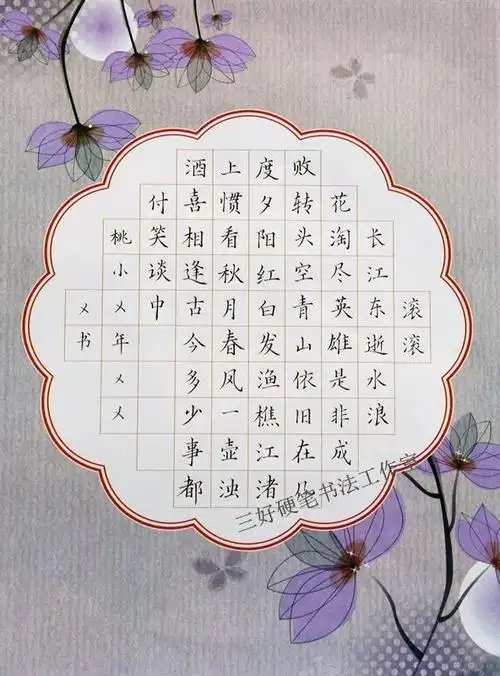 滚滚
长江东逝水浪
花淘尽英雄是非成
败转头空青山依旧在几
度夕阳红白发渔樵江渚
上惯看秋月春风一壶浊
酒喜相逢古今多少事都
付笑谈中
桃小㐅年㐅㐅
㐅书
三好硬笔书法工作室